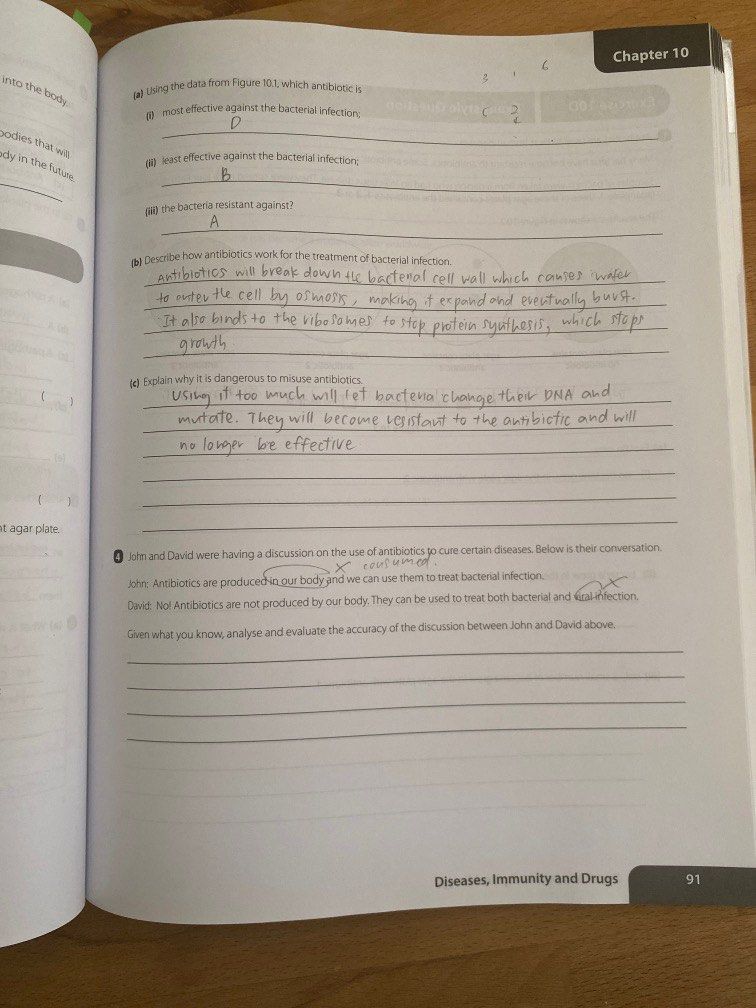 Chapter 10
into the body.
bodies that will
dy in the future.
( )
( )
at agar plate.
3 1 6
C 2
(a) Using the data from Figure 10.1, which antibiotic is
(i) most effective against the bacterial infection;
D
(ii) least effective against the bacterial infection;
B
(iii) the bacteria resistant against?
A
(b) Describe how antibiotics work for the treatment of bacterial infection.
Antibiotics will break down the bacterial cell wall which causes water
to enter the cell by osmosis, making it expand and eventually burst.
It also binds to the ribosomes to stop protein synthesis, which stops
growth
(c) Explain why it is dangerous to misuse antibiotics.
Using it too much will let bacteria change their DNA and
mutate. They will become resistant to the antibiotic and will
no longer be effective
4 John and David were having a discussion on the use of antibiotics to cure certain diseases. Below is their conversation.
consumed.
John: Antibiotics are produced in our body and we can use them to treat bacterial infection.
David: No! Antibiotics are not produced by our body. They can be used to treat both bacterial and viral infection.
Given what you know, analyse and evaluate the accuracy of the discussion between John and David above.
Diseases, Immunity and Drugs 91